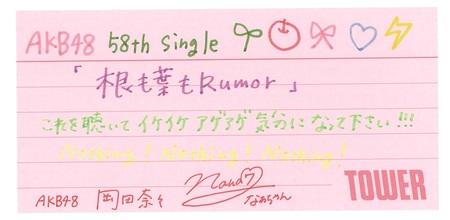 AKB48 58th Single
「根も葉もRumor」
これを聴いて イケイケ アゲアゲ 気分になって下さい!!!
Nothing! Nothing! Nothing!
AKB48 岡田奈々 なぁちゃん
TOWER